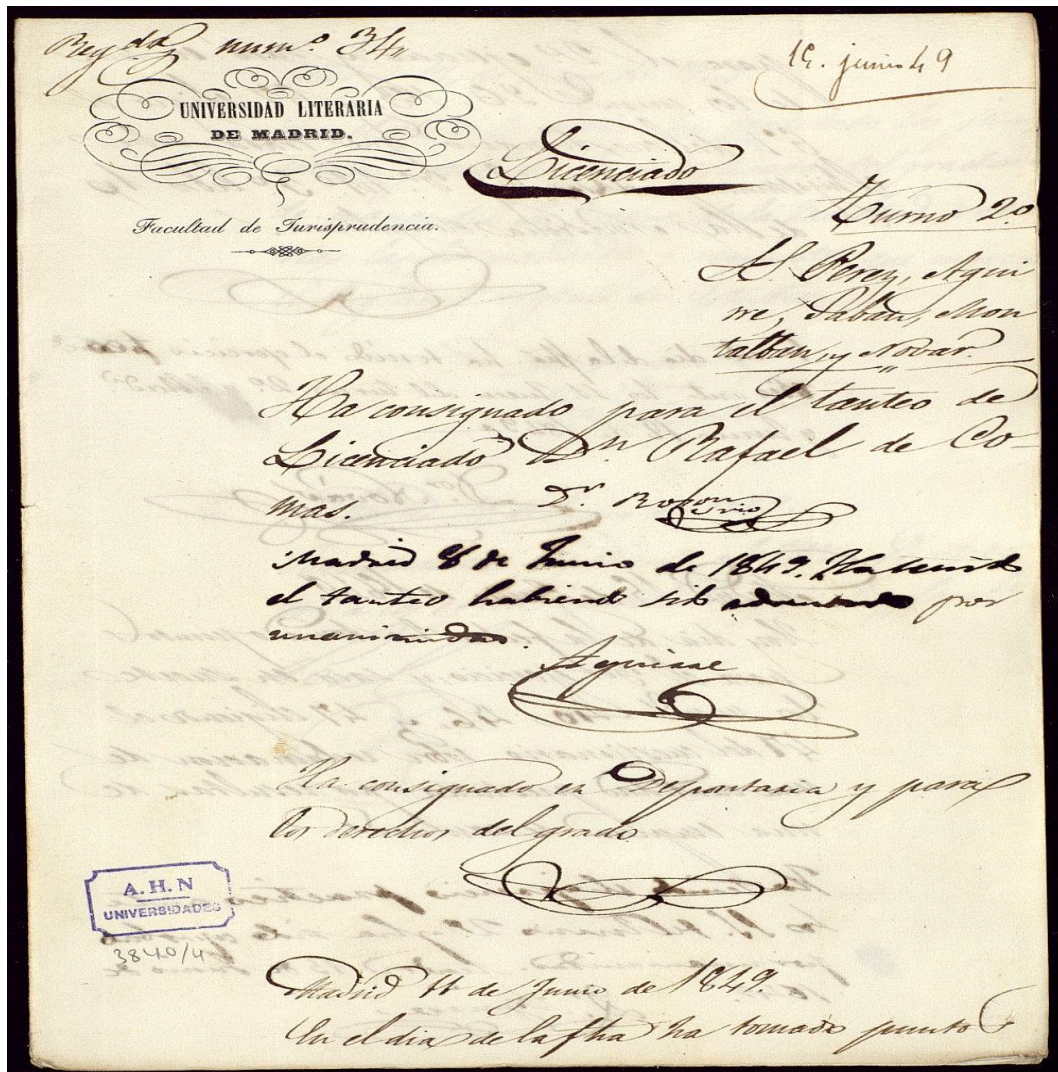 numº 34
15. junio 49
UNIVERSIDAD LITERARIA
DE MADRID.
Licenciado
Facultad de Jurisprudencia.
Turno 2.º
SS Perez, Agui
rre, Sabau, Mon
talban, y Novar.
Ha consignado para el tanteo de
Licenciado Dn Rafael de Co-
mas.
Dr.
Madrid 8 de Junio de 1849. Ha tenido
el tanteo habiendo sido admitido por
unanimidad.
Aguirre
Ha consignado en Depositaria y para
los derechos del grado.
A. H. N
UNIVERSIDADES
3840/4
Madrid 11 de Junio de 1849.
En el dia de la fha ha tomado puntos